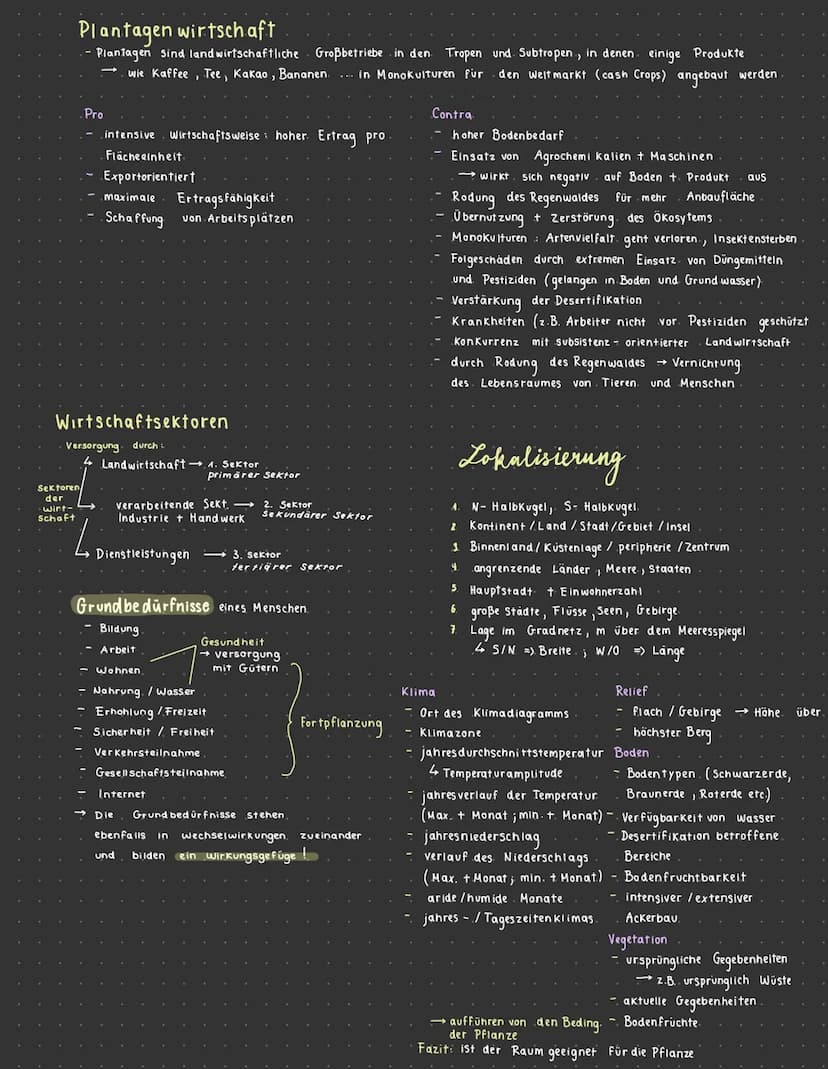 Plantagenwirtschaft
- Plantagen sind landwirtschaftliche Großbetriebe in den Tropen und Subtropen, in denen einige Produkte
→ wie Kaffee, Tee, Kakao, Bananen ... in Monokulturen für den Weltmarkt (cash Crops) angebaut werden
Pro
- intensive Wirtschaftsweise: hoher Ertrag pro
Flächeinheit
- Exportorientiert
- maximale Ertragsfähigkeit
- Schaffung von Arbeitsplätzen
Contra
- hoher Bodenbedarf
- Einsatz von Agrochemikalien + Maschinen
→ wirkt sich negativ auf Boden + Produkt aus
- Rodung des Regenwaldes für mehr Anbaufläche
- Übernutzung + Zerstörung des Ökosytems
- Monokulturen: Artenvielfalt geht verloren, Insektensterben
- Folgeschäden durch extremen Einsatz von Düngemitteln
und Pestiziden (gelangen in Boden und Grundwasser)
- Verstärkung der Desertifikation
- Krankheiten (z.B. Arbeiter nicht vor Pestiziden geschützt
- Konkurrenz mit subsistenz-orientierter Landwirtschaft
- durch Rodung des Regenwaldes → Vernichtung
des Lebensraumes von Tieren und Menschen
Wirtschaftsektoren
Versorgung durch:
↳ Landwirtschaft → 1. Sektor
primärer Sektor
Sektoren
der
Wirt-
schaft
verarbeitende Sekt. → 2. Sektor
Industrie + Handwerk sekundärer Sektor
↳ Dienstleistungen → 3. Sektor
tertiärer Sektor
Grundbedürfnisse eines Menschen
- Bildung
- Arbeit
- Wohnen
- Nahrung / Wasser
- Erhohlung / Freizeit
- Sicherheit / Freiheit
- Verkehrsteilnahme
- Gesellschaftsteilnahme
- Internet
Gesundheit
→ Versorgung
mit Gütern
Fortpflanzung
→ Die Grundbedürfnisse stehen
ebenfalls in wechselwirkungen zueinander
und bilden ein Wirkungsgefüge!
Lokalisierung
1. N-Halbkugel, S-Halbkugel
2. Kontinent / Land / Stadt / Gebiet / Insel
3. Binnenland / Küstenlage / peripherie / Zentrum
4. angrenzende Länder, Meere, Staaten
5. Hauptstadt + Einwohnerzahl
6. große Städte, Flüsse, Seen, Gebirge
7. Lage im Gradnetz, m über dem Meeresspiegel
↳ S/N => Breite ; W/O => Länge
Klima
- Ort des Klimadiagramms
- Klimazone
- jahresdurchschnittstemperatur
↳ Temperaturamplitude
- jahresverlauf der Temperatur
(Max. + Monat ; min. + Monat)
- jahresniederschlag
- verlauf des Niederschlags
(Max. + Monat ; min. + Monat)
- aride / humide Monate
- jahres- / Tageszeitenklimas
Relief
- flach / Gebirge → Höhe über
- höchster Berg
Boden
- Bodentypen (Schwarzerde,
Braunerde, Roterde etc.)
- Verfügbarkeit von Wasser
- Desertifikation betroffene
Bereiche
- Bodenfruchtbarkeit
- intensiver / extensiver
Ackerbau
Vegetation
- ursprüngliche Gegebenheiten
→ z.B. ursprünglich Wüste
- aktuelle Gegebenheiten
- Bodenfrüchte
→ aufführen von den Beding.
der Pflanze
Fazit: ist der Raum geeignet für die Pflanze